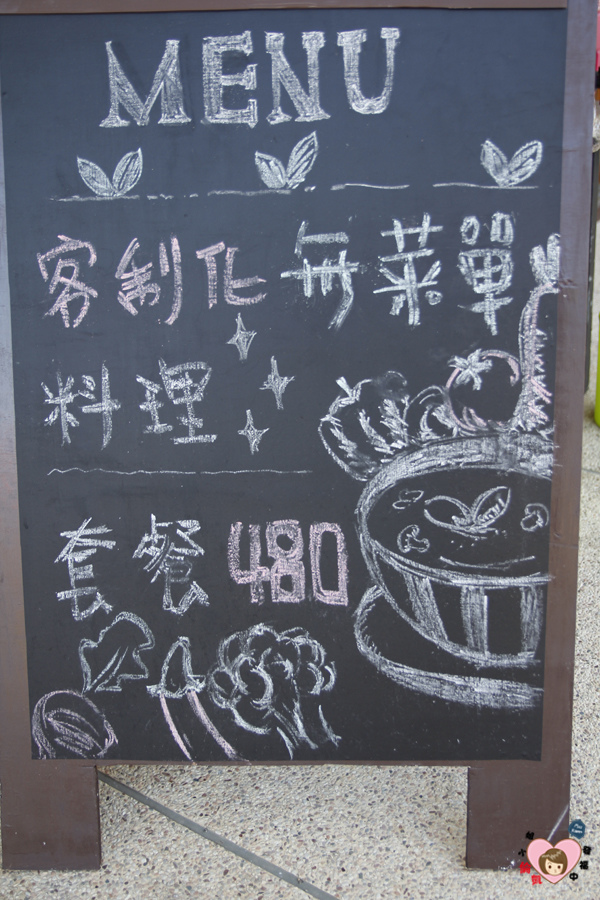 MENU
客制化 無菜單
料理
套餐 480